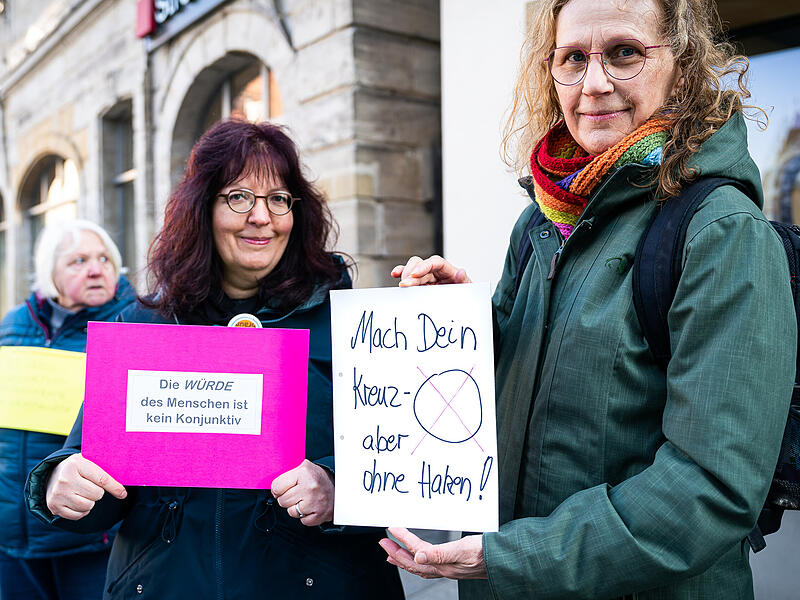 Die WÜRDE
des Menschen ist
kein Konjunktiv
Mach Dein
Kreuz-
aber
ohne Haken!